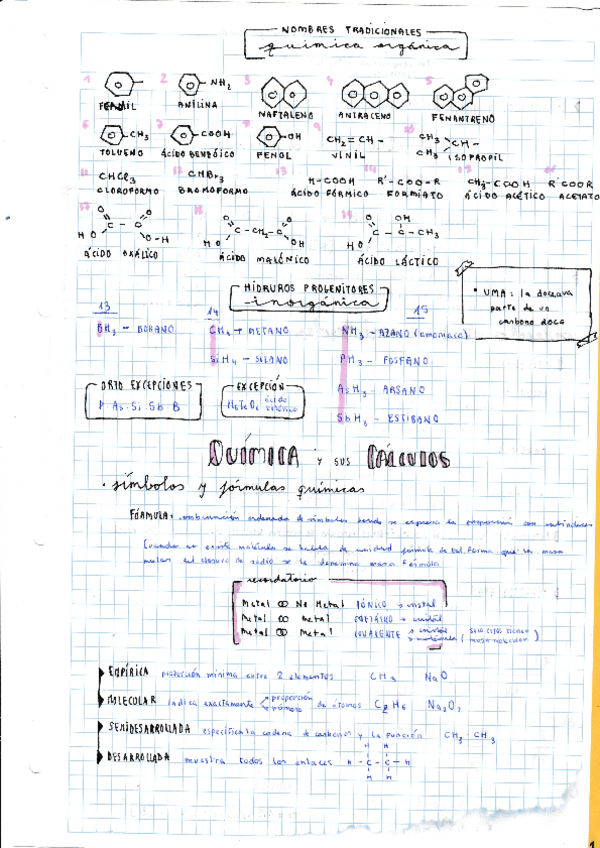 NOMBRES TRADICIONALES
química orgánica
1 2 3 4 5
NH2
FENIL ANILINA NAFTALENO ANTRACENO FENANTRENO
6 7 8 9 10
CH3 COOH OH CH2=CH- CH3 CH3 >CH-
TOLUENO ÁCIDO BENZÓICO FENOL VINIL ISOPROPIL
11 12 13 14
CHCl3 CHBr3 H-COOH R'-COO-R CH3-COOH R'COOR
CLOROFORMO BROMOFORMO ÁCIDO FÓRMICO FORMIATO ÁCIDO ACÉTICO ACETATO
17 18 19
O O HO C-C O-H O O HO C-CH2-C OH O OH HO C-C-CH3
ÁCIDO OXÁLICO ÁCIDO MALÓNICO ÁCIDO LÁCTICO
HIDRUROS PROGENITORES
inorgánica
• UMA: la doceava
parte de un
carbono doce
13 14 15
BH3 - BORANO CH4 → METANO NH3 - AZANO (amoniaco)
SiH4 - SILANO PH3 - FOSFANO
ORTO EXCEPCIONES EXCEPCIÓN AsH3 - ARSANO
P As Si Sb B ácido
SbH3 - ESTIBANO
QUÍMICA y sus CÁLCULOS
· símbolos y fórmulas químicas
FÓRMULA: combinación ordenada de símbolos donde se expresa la proporción
Cuando no existe molécula se habla de unidad fórmula de tal forma que la masa
molar del cloruro de sodio se le denomina masa fórmula
recordatorio
Metal ∞ No Metal IÓNICO → cristal
Metal ∞ metal METÁLICO → cristal
Metal ∞ Metal COVALENTE → cristal → molécula
EMPÍRICA proporción mínima entre 2 elementos CH3 NaO
MOLECULAR indica exactamente proporción número de átomos C2H6 Na2O2
SEMIDESARROLLADA especifican la cadena de carbonos y la función CH3-CH3
DESARROLLADA muestra todos los enlaces H H H-C-C-H H H
1